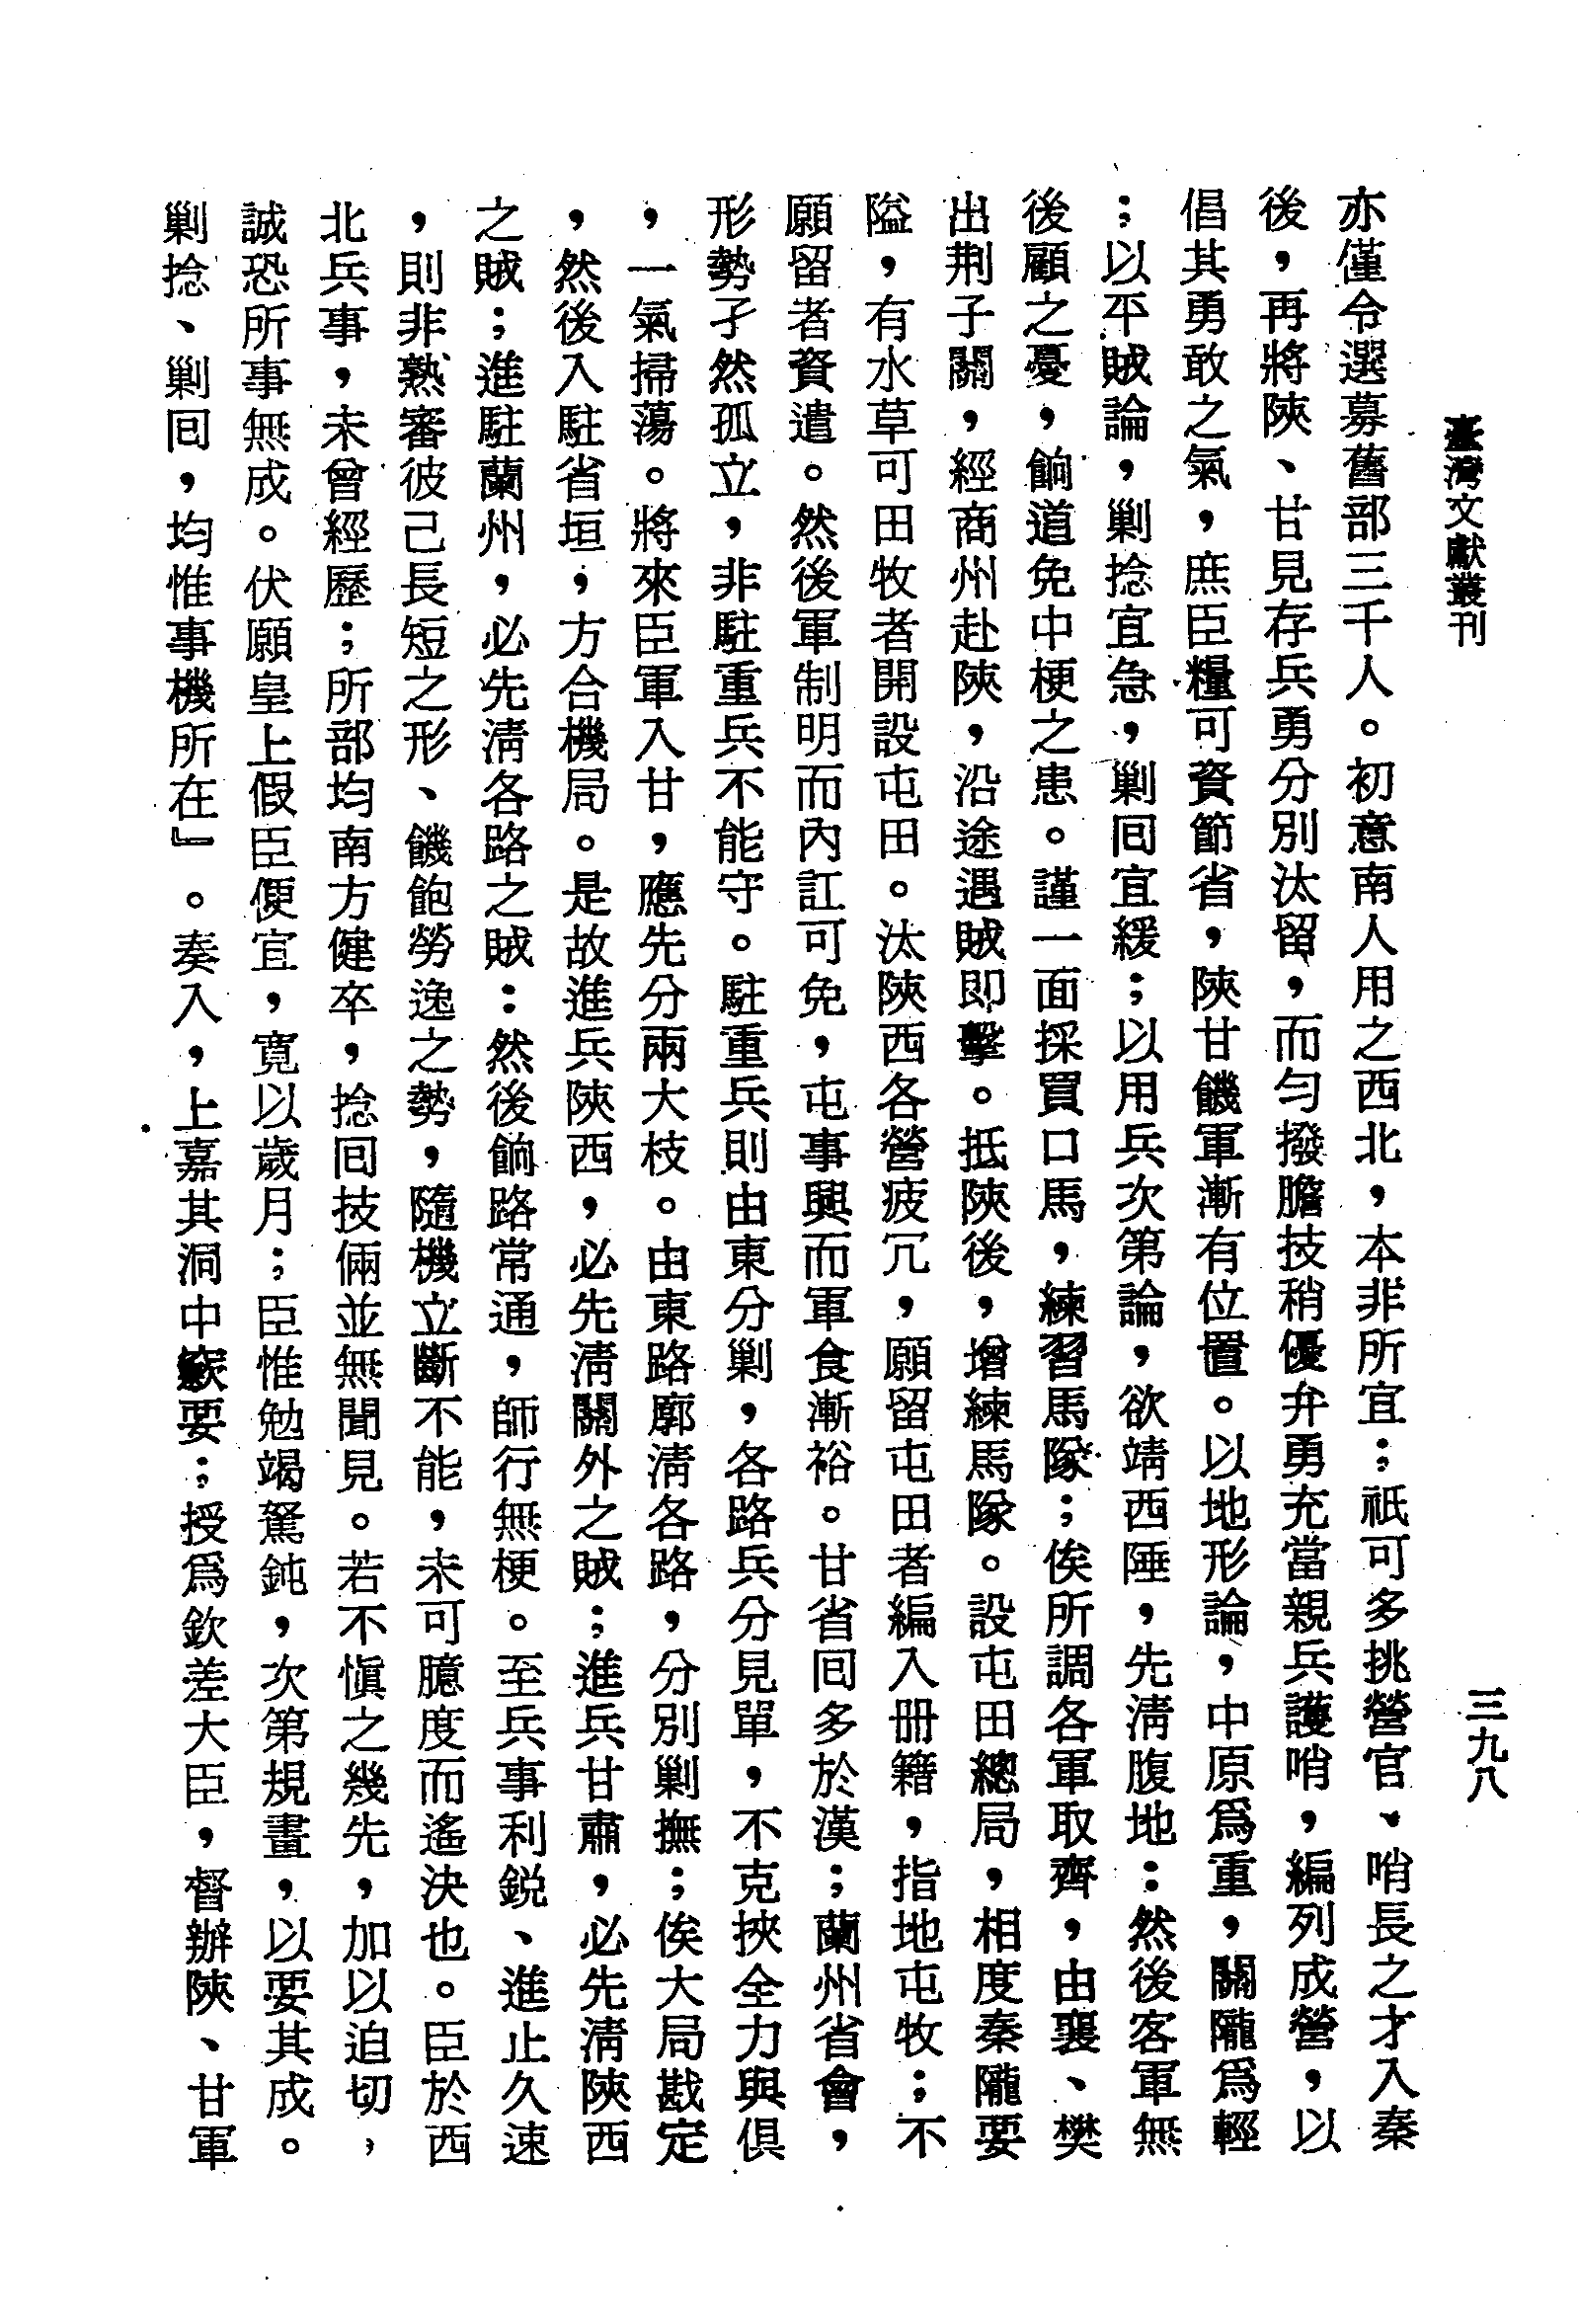 臺灣文獻叢刊
三九八
亦僅令選募舊部三千人。初意南人用之西北，本非所宜；祇可多挑營官、哨長之才入秦
後，再將陝、甘見存兵勇分別汰留，而勻撥膽技稍優弁勇充當親兵護哨，編列成營，以
倡其勇敢之氣，庶臣糧可資節省，陝甘饑軍漸有位置。以地形論，中原爲重，關隴爲輕
；以平賊論，剿捻宜急，剿囘宜緩；以用兵次第論，欲靖西陲，先淸腹地：然後客軍無
後顧之憂，餉道免中梗之患。謹一面採買口馬，練習馬隊；俟所調各軍取齊，由襄、樊
出荆子關，經商州赴陝，沿途遇賊即擊。抵陝後，增練馬隊。設屯田總局，相度秦隴要
隘，有水草可田牧者開設屯田。汰陝西各營疲冗，願留屯田者編入册籍，指地屯牧；不
願留者資遣。然後軍制明而內訌可免，屯事興而軍食漸裕。甘省囘多於漢；蘭州省會，
形勢孑然孤立，非駐重兵不能守。駐重兵則由東分剿，各路兵分見單，不克挾全力與俱
，一氣掃蕩。將來臣軍入甘，應先分兩大枝。由東路廓淸各路，分別剿撫；俟大局戡定
，然後入駐省垣，方合機局。是故進兵陝西，必先淸關外之賊；進兵甘肅，必先淸陝西
之賊；進駐蘭州，必先淸各路之賊：然後餉路常通，師行無梗。至兵事利鋭、進止久速
，則非熟審彼己長短之形、饑飽勞逸之勢，隨機立斷不能，未可臆度而遙決也。臣於西
北兵事，未曾經歷；所部均南方健卒，捻囘技倆並無聞見。若不愼之幾先，加以迫切，
誠恐所事無成。伏願皇上假臣便宜，寬以歲月；臣惟勉竭駑鈍，次第規畫，以要其成。
剿捻、剿囘，均惟事機所在』。奏入，上嘉其洞中窾要；授爲欽差大臣，督辦陝、甘軍